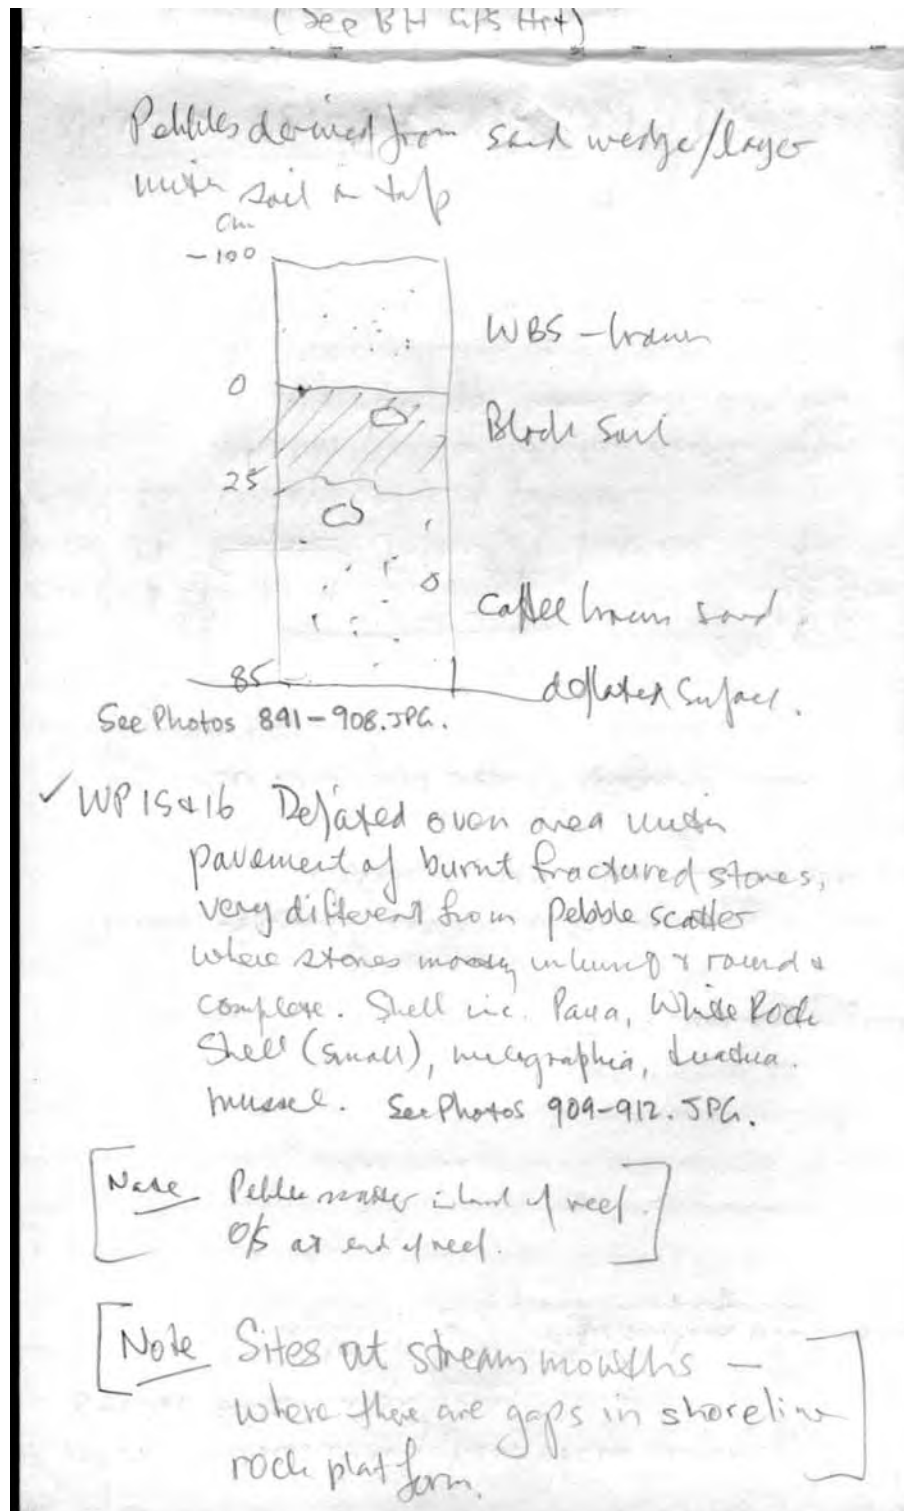 (See BH GPS Hgt)
Pebbles derived from sand wedge/layer
with soil on top
cm
-100
WBS - brown
0
Black Soil
25
Coffee brown sand
85
deflated surface.
See Photos 891-908.JPG.
✓ WP 15 & 16 Deflated oven area with
pavement of burnt fractured stones,
very different from pebble scatter
where stones mostly unburnt & round &
complete. Shell inc. Paua, White Rock
Shell (small), melagraphia, tuatua.
mussel. See Photos 909-912.JPG.
[Note Pebble scatter inland of reef.
O/S at end of reef.]
[Note Sites at stream mouths —
where there are gaps in shoreline
rock platform.]